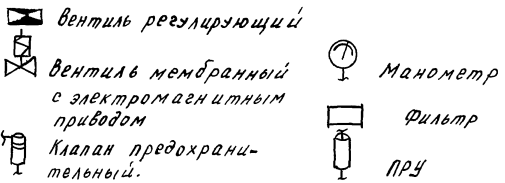 Вентиль регулирующий
Вентиль мембранный
с электромагнитным
приводом
Клапан предохрани-
тельный.
Манометр
Фильтр
ПРУ